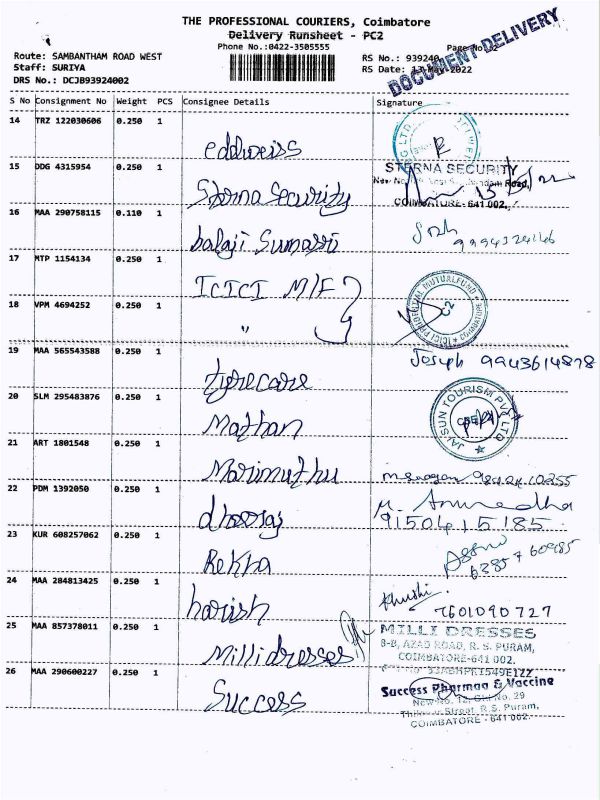 THE PROFESSIONAL COURIERS, Coimbatore
Delivery Runsheet - PC2
Phone No.:0422-3505555
Route: SAMBANTHAM ROAD WEST
Staff: SURIYA
DRS No.: DCJB93924002
RS No.: 939240
RS Date: 13-May-2022
DOCUMENT DELIVERY
S No Consignment No Weight PCS Consignee Details Signature
14 TRZ 122030606 0.250 1
edelweiss
15 DDG 4315954 0.250 1
Sterna Security
STERNA SECURITY
Road,
COIMBATORE-641 002.
16 MAA 290758115 0.110 1
balaji
17 MTP 1154134 0.250 1
ICICI M/F
ICICI PRUDENTIAL MUTUAL FUND COIMBATORE
18 VPM 4694252 0.250 1
"
19 MAA 565543588 0.250 1
tyrecare
Joseph 9943614878
20 SLM 295483876 0.250 1
Mathan
JAI SUN TOURISM PVT LTD
21 ART 1801548 0.250 1
Marimuthu
22 PDM 1392050 0.250 1
dhooraj
M. Anuradha
9150415185
23 KUR 608257062 0.250 1
Rekha
24 MAA 284813425 0.250 1
harish
Khushi
7601090727
25 MAA 857378011 0.250 1
Milli dresses
MILLI DRESSES
8-B, AZAD ROAD, R. S. PURAM,
COIMBATORE-641 002.
26 MAA 290600227 0.250 1
Success
Success Pharmaa & Vaccine
New No. 12, Old No. 29
Street, R.S. Puram,
COIMBATORE - 641 002.